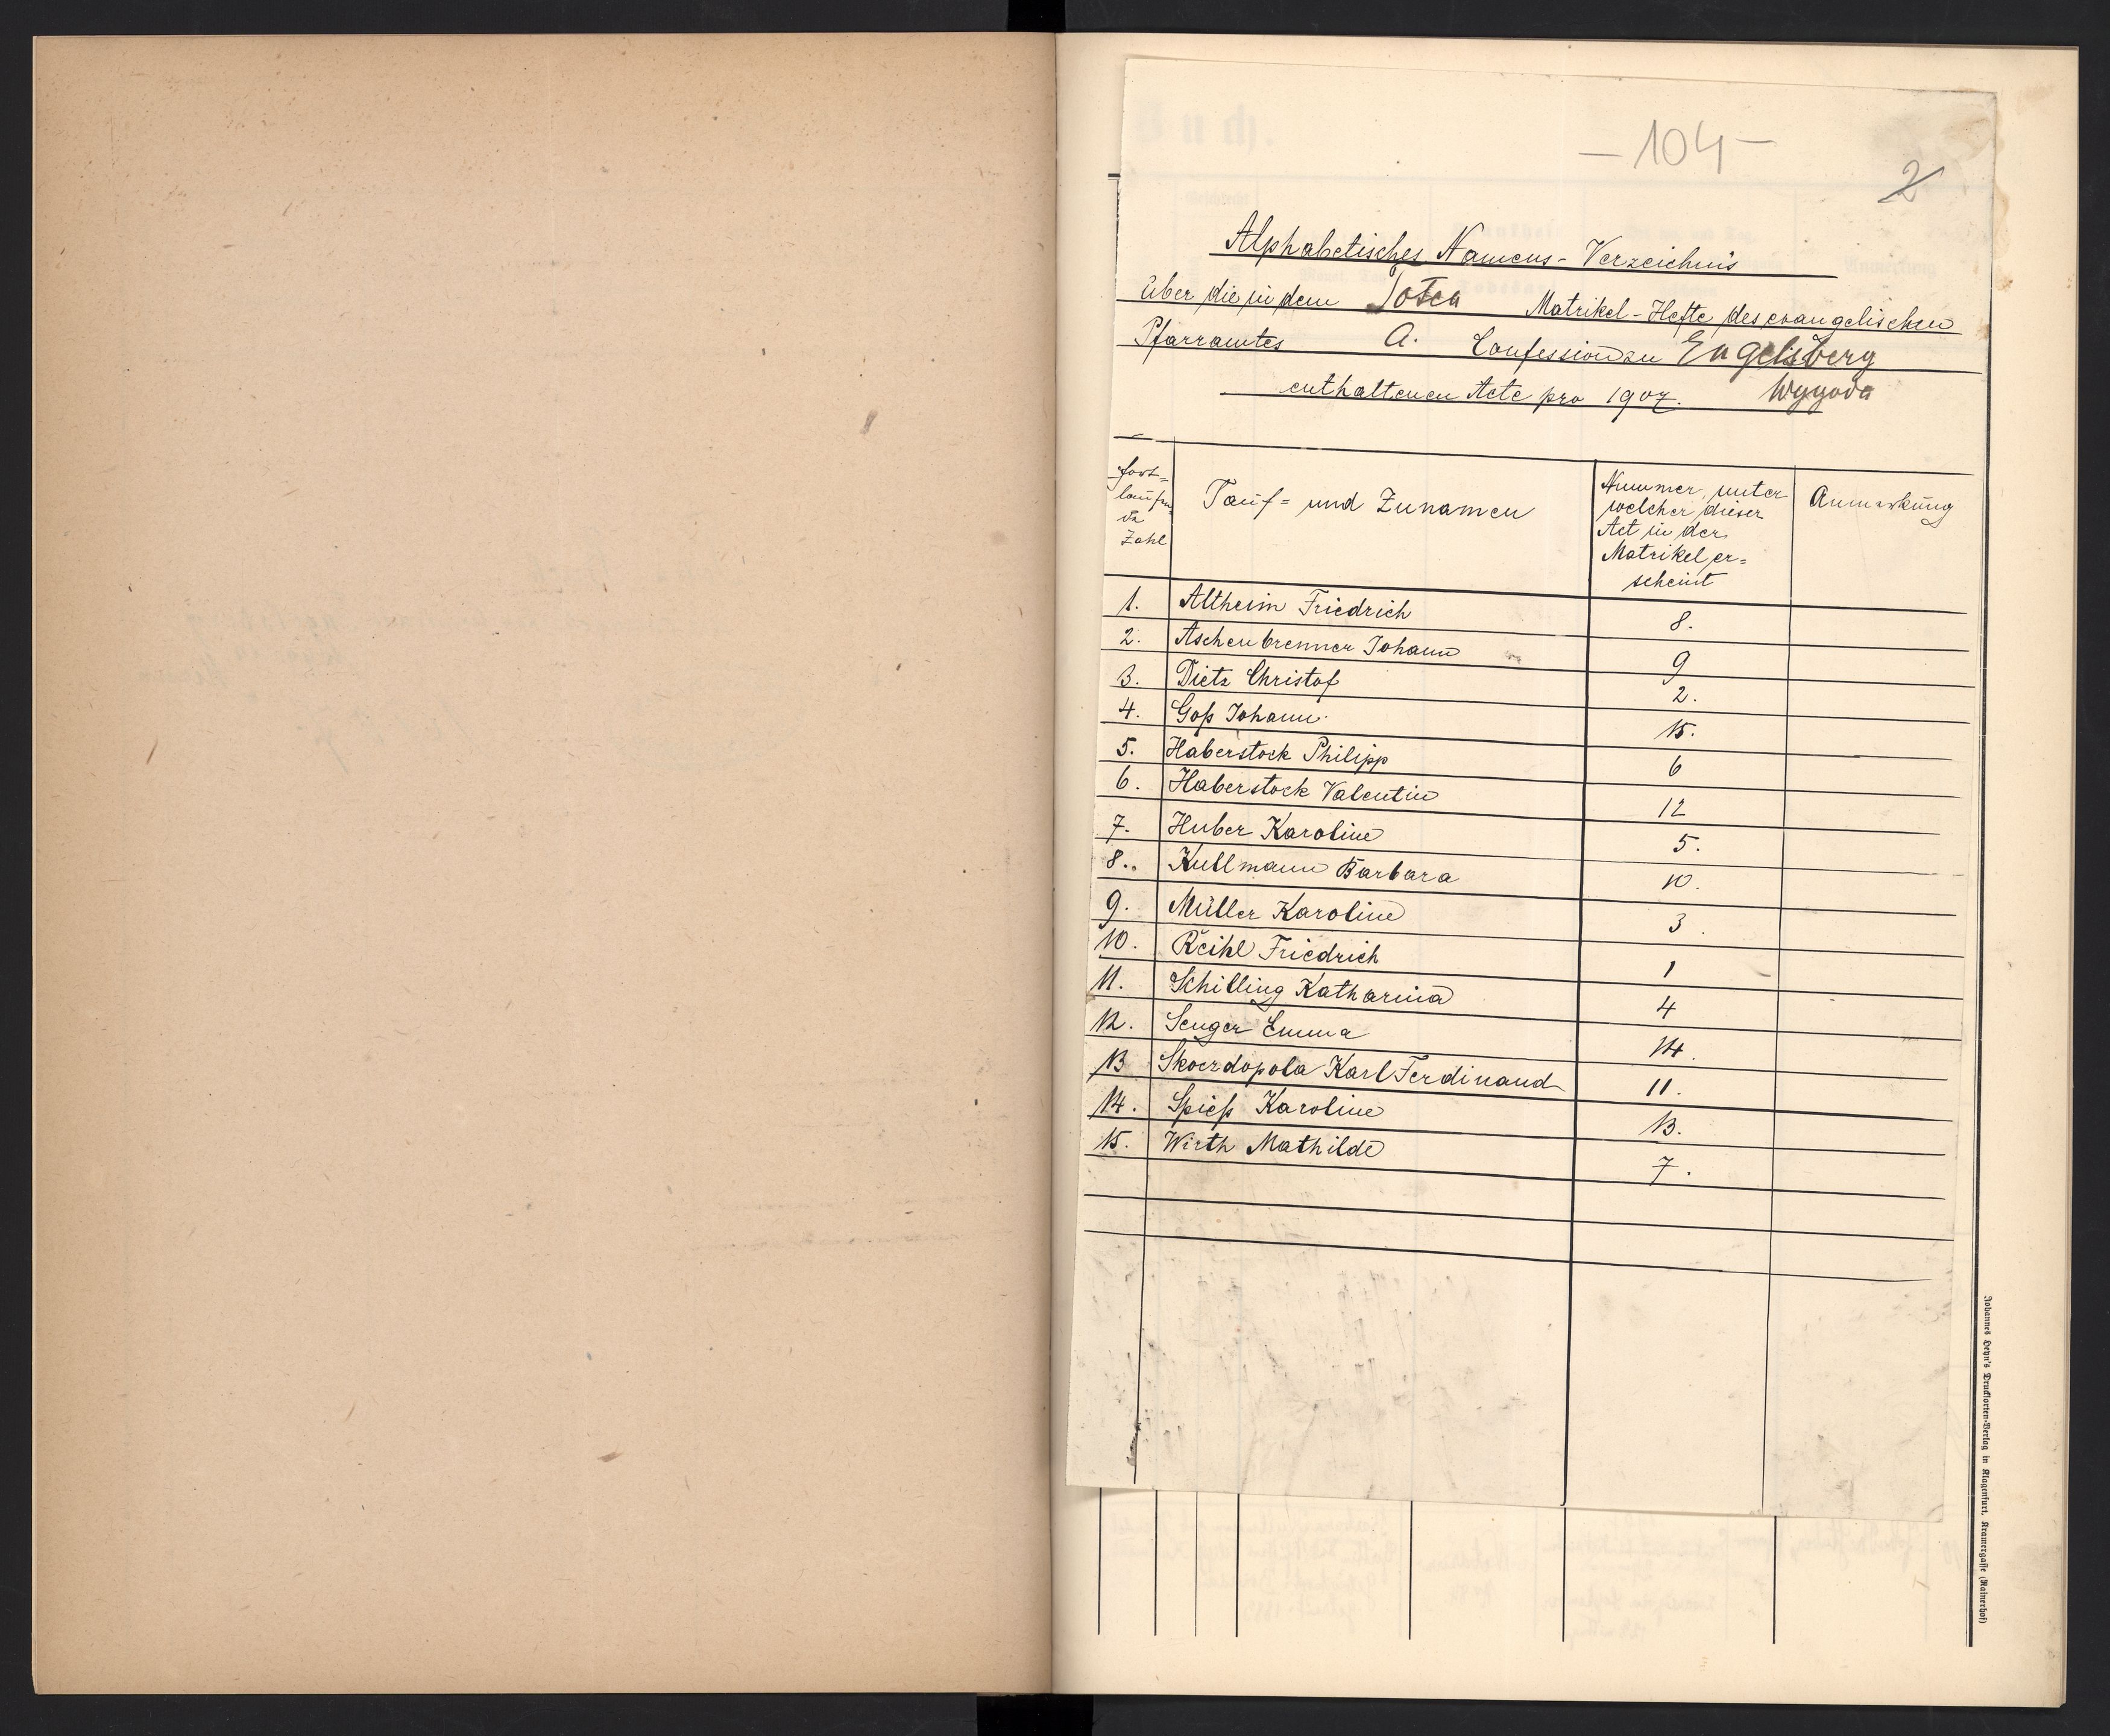 – 104 –
2
Alphabetisches Namens-Verzeichnis
über die in dem Toten Matrikel-Hefte des evangelischen
Pfarramtes A. Confession zu Engelsberg
enthaltenen Acte pro 1907. Wygoda
fort=
laufen
de
Zahl
Tauf= und Zunamen
Nummer, unter
welcher dieser
Act in der
Matrikel er=
scheint
Anmerkung
1. Altheim Friedrich 8.
2. Aschenbrenner Johann 9
3. Dietz Christof 2.
4. Goß Johann 15.
5. Haberstock Philipp 6
6. Haberstock Valentin 12
7. Huber Karoline 5.
8. Kullmann Barbara 10.
9. Müller Karoline 3.
10. Reihl Friedrich 1
11. Schilling Katharina 4
12. Senger Emma 14.
13 Skoerdopola Karl Ferdinand 11.
14. Spieß Karoline 13.
15. Wirth Mathilde 7.
Johannes Heyn's Drucksorten-Verlag in Klagenfurt, Kramergasse (Rainerhof)